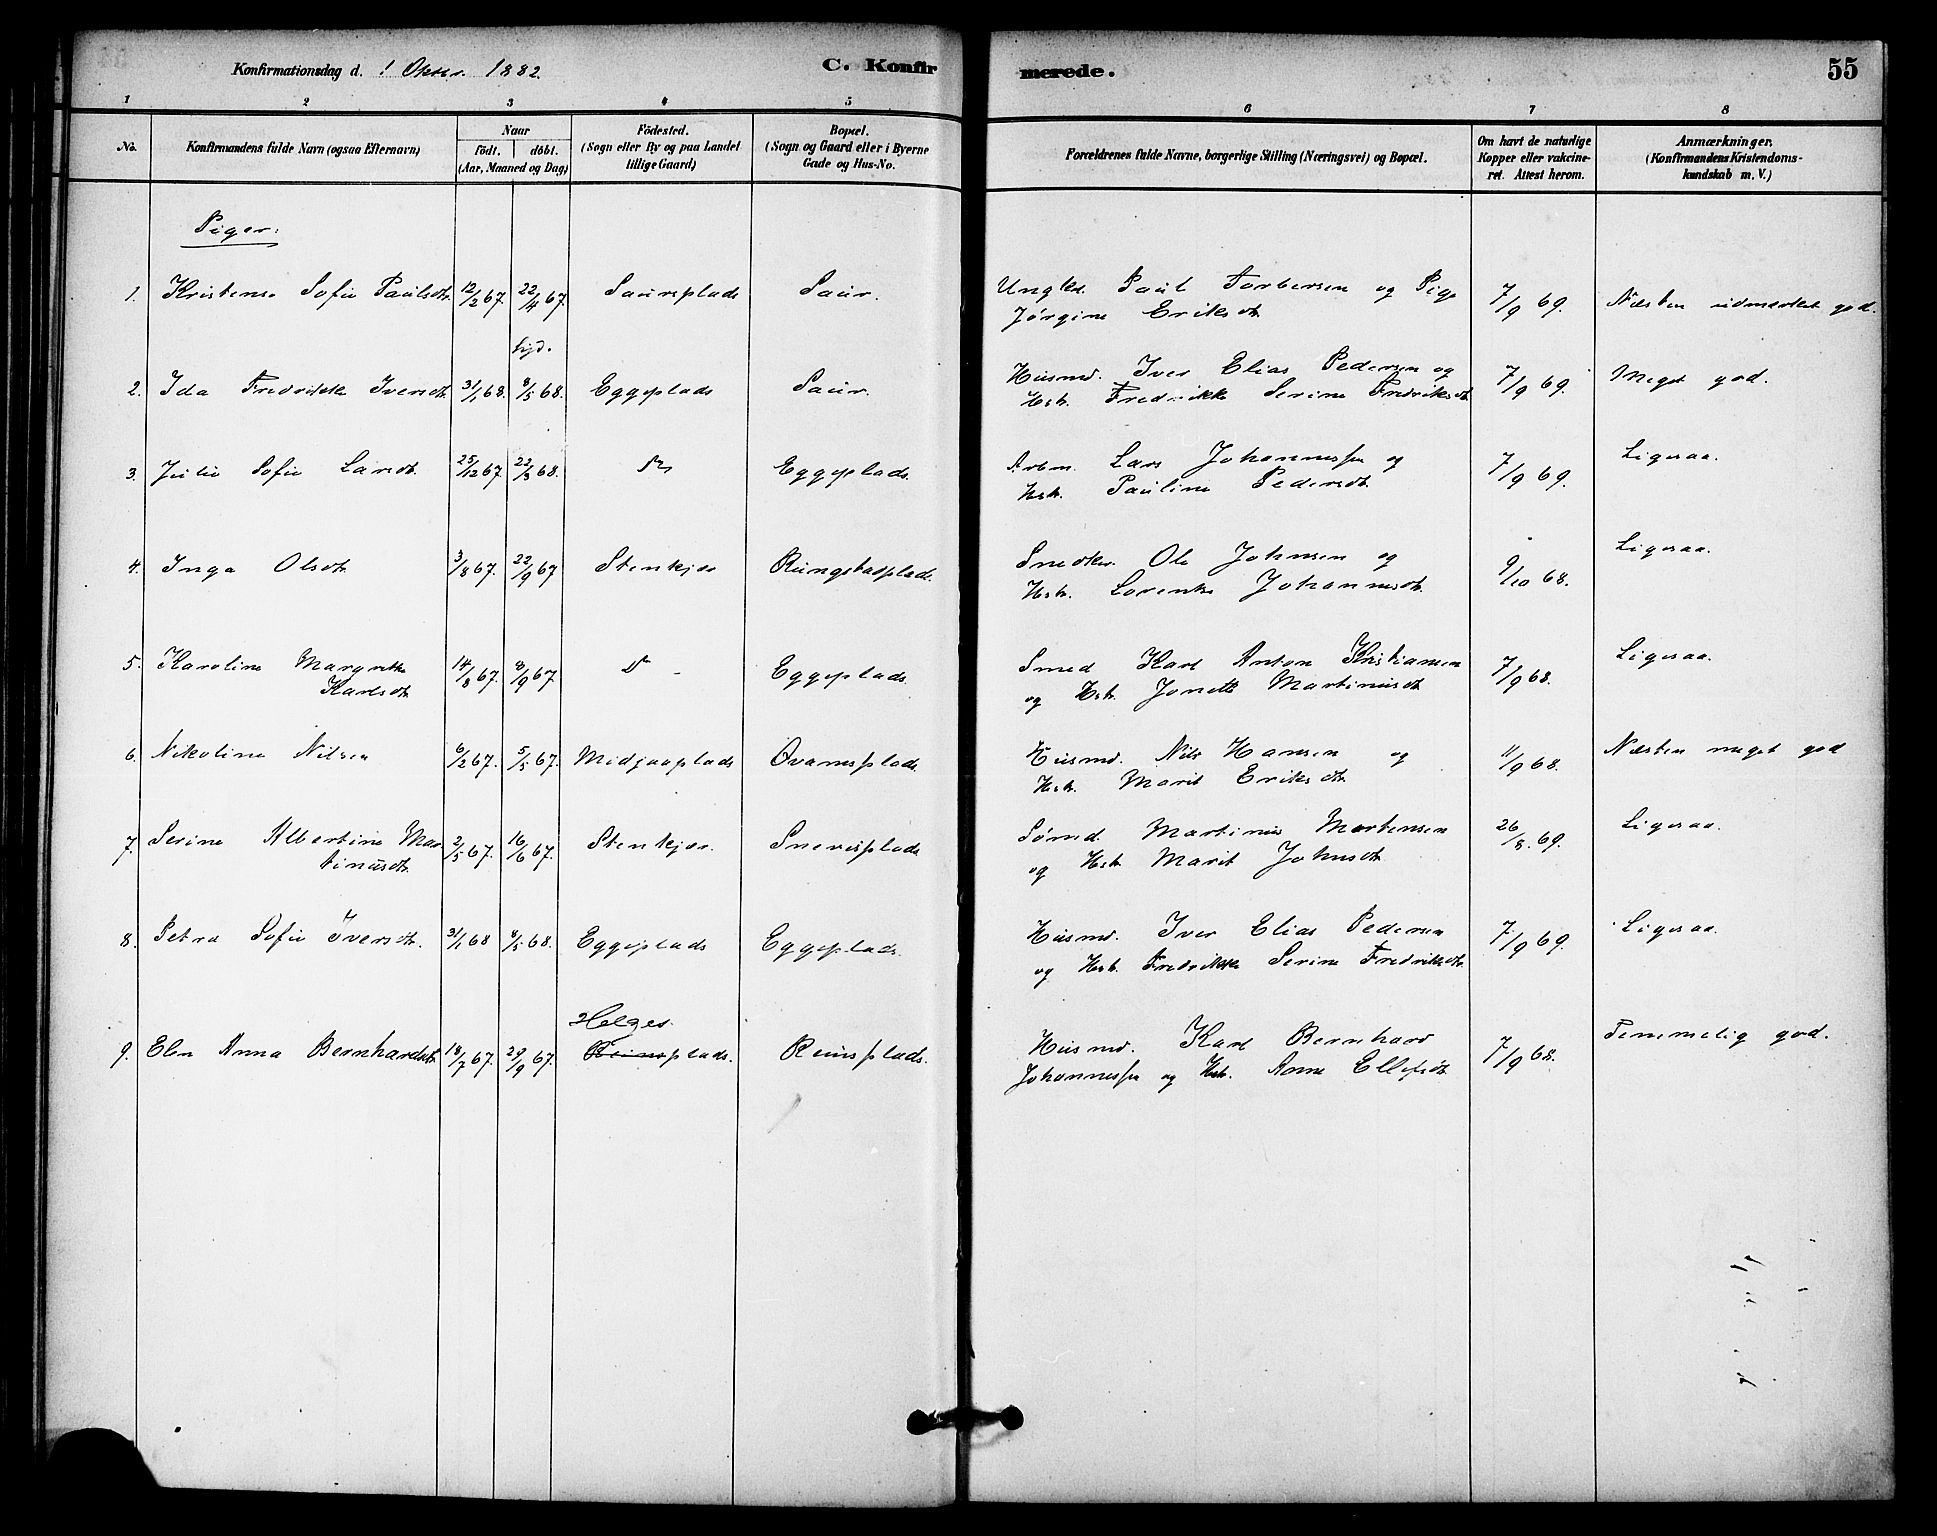 Konfirmationsdag d. 1 Oktbr. 1882. C. Konfirmerede. 55
1 2 3 4 5 6 7 8
No. Konfirmandens fulde Navn (ogsaa Efternavn) Naar födt. döbt. (Aar, Maaned og Dag) Födested. (Sogn eller By og paa Landet tillige Gaard) Bopæl. (Sogn og Gaard eller i Byerne Gade og Hus-No. Forældrenes fulde Navne, borgerlige Stilling (Næringsvei) og Bopæl. Om havt de naturlige Kopper eller vakcineret. Attest herom. Anmærkninger. (Konfirmandens Kristendomskundskab m. V.)
Piger:
1. Kristense Sofie Paulsdtr. 12/2 67. 22/4 67. Saursplads Saur. Ungkl. Paul Torbersen og Pige 7/9 69. Næsten udmærket god.
Jørgine Eriksdtr.
hjd.
2. Ida Fredrikke Iversdtr. 31/1 68. 8/5 68. Eggeplads Saur. Husmd. Iver Elias Pedersen og 7/9 69. Meget god.
Hstr. Fredrikke Serine Fredriksdtr.
3. Julie Sofie Larsdtr. 25/12 67. 22/3 68. Do Eggeplads. Arbm. Lars Johannessen og 7/9 69. Ligesaa.
Hstr. Pauline Pedersdtr.
4. Inga Olsdtr. 3/8 67. 22/9 67 Stenkjær Rungstadplads. Snedker Ole Johnsen og 9/10 68. Ligesaa.
Hstr. Lorentse Johannesdtr.
5. Karoline Margrethe 14/8 67. 8/9 67. Do Eggeplads. Smed Karl Anton Kristiansen 7/9 68. Ligesaa.
Karlsdtr. og Hstr. Jonette Martinusdtr.
6. Nikoline Nilsen 6/2 67. 5/5 67. Midjaaplads Ovamsplads. Husmd. Nils Hansen og 11/9 68. Næsten meget god
Hstr. Marit Eriksdtr.
7. Serine Albertine Mar 2/5 67. 16/6 67. Stenkjær. Snevisplads Sømd. Martinus Mortensen 26/8. 69. Ligesaa.
tinusdtr. og Hstr. Marit Johnsdtr.
8. Petra Sofie Iversdtr. 31/1 68 8/5 68. Eggeplads Eggeplads. Husmd. Iver Elias Pedersen 7/9 69. Ligesaa.
og Hstr. Fredrikke Serine Fredriksdtr.
Helges.
9. Elen Anna Bernhardsdtr. 18/7 67. 29/9 67. plads. Reinsplads. Husmd. Karl Bernhard 7/9 68. Temmelig god.
Johannessen og Hstr. Anne Ellefsdtr.